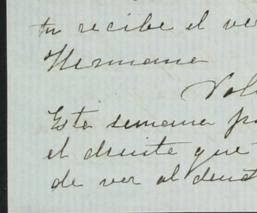 tu recibe el ve
Hermana
Vol
Esta semana
el diente que
de ver al dent